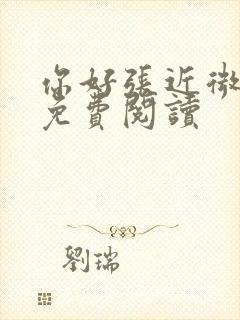 你好張近微
免費閱讀
劉瑞